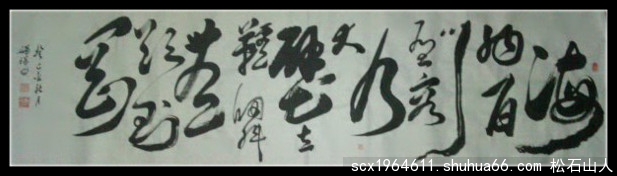 海
納百
川
有容
乃
大
壁立
千仞
無
欲則
剛
scx1964611.shuhua66.com 松石山人